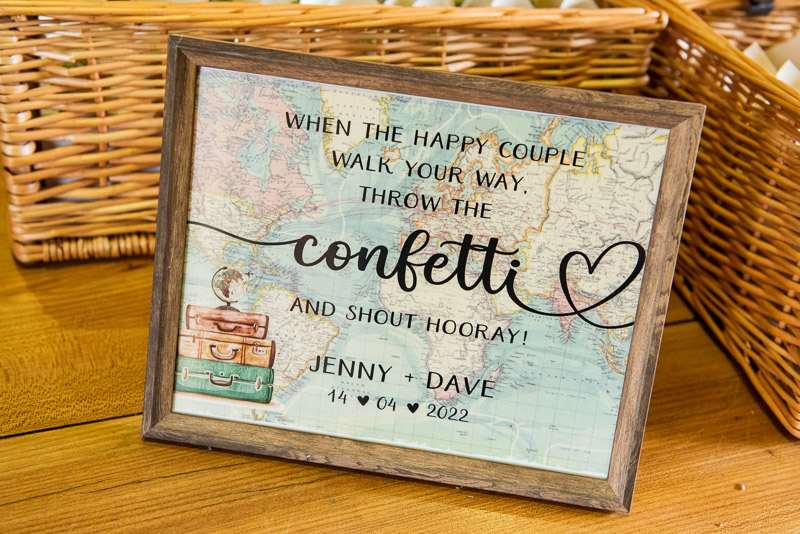 WHEN THE HAPPY COUPLE
WALK YOUR WAY,
THROW THE
confetti
AND SHOUT HOORAY!
JENNY + DAVE
14 ♥ 04 ♥ 2022